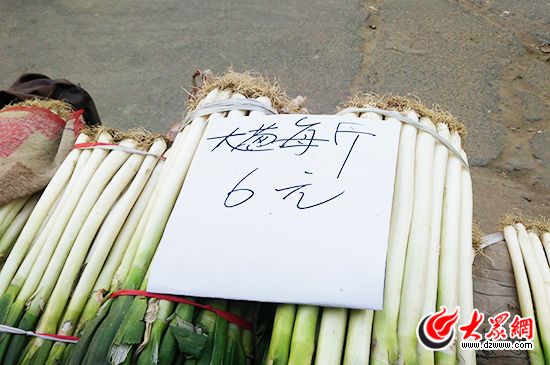 大葱每斤
6元
大众网
www.dzwww.com